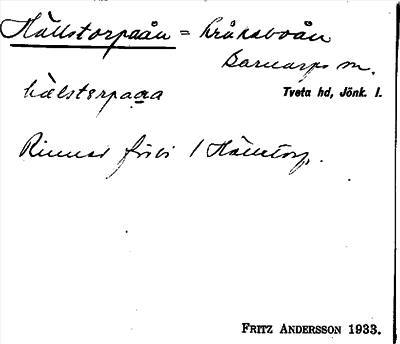 Hällstorpaån = Kråkeboån
Barnarps sn.
Tveta hd, Jönk. l.
hälstɐrpaɑa
Rinner förbi / Hällstorp.
FRITZ ANDERSSON 1933.